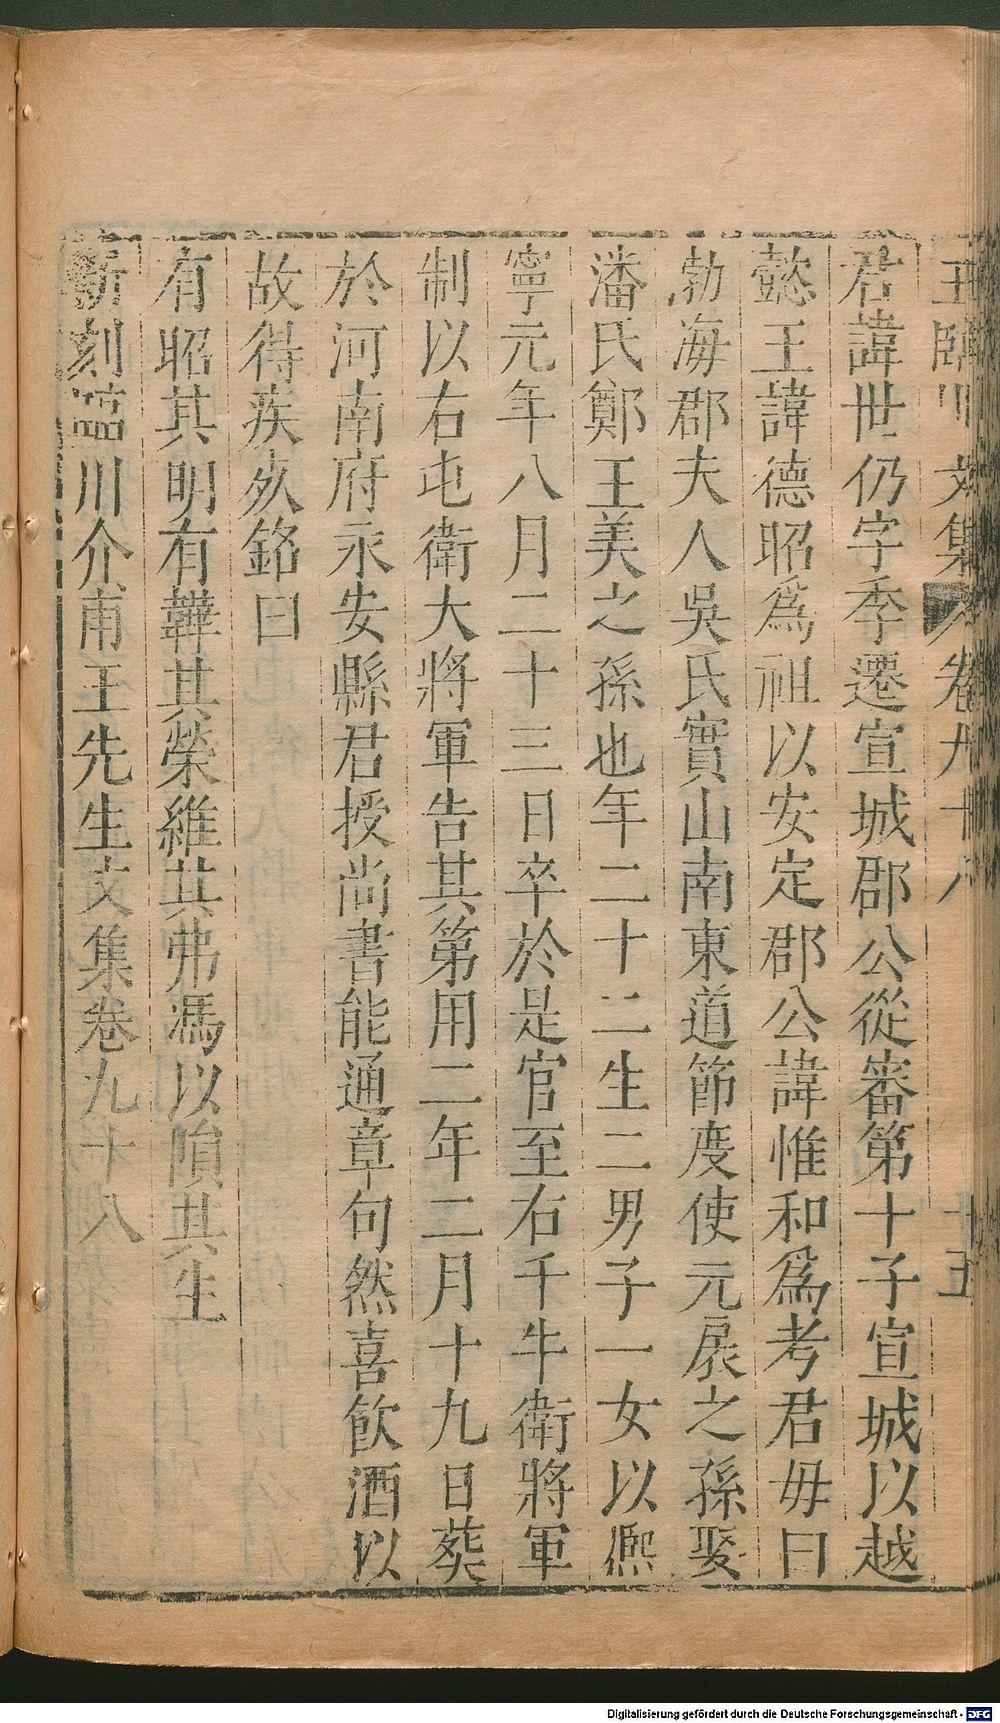 王臨川文集 卷九十八 十五
君諱世仍字季遷宣城郡公從審第十子宣城以越
懿王諱德昭爲祖以安定郡公諱惟和爲考君毋曰
勃海郡夫人吳氏實山南東道節度使元扆之孫娶
潘氏鄭王美之孫也年二十二生二男子一女以熈
寧元年八月二十三日卒於是官至右千牛衛將軍
制以右屯衛大將軍告其第用二年二月十九日葬
於河南府永安縣君授尚書能通章句然喜飲酒以
故得疾夊銘曰
有昭其明有韡其榮維其弗馮以隕其生
新刻臨川介甫王先生文集卷九十八
Digitalisierung gefördert durch die Deutsche Forschungsgemeinschaft - DFG